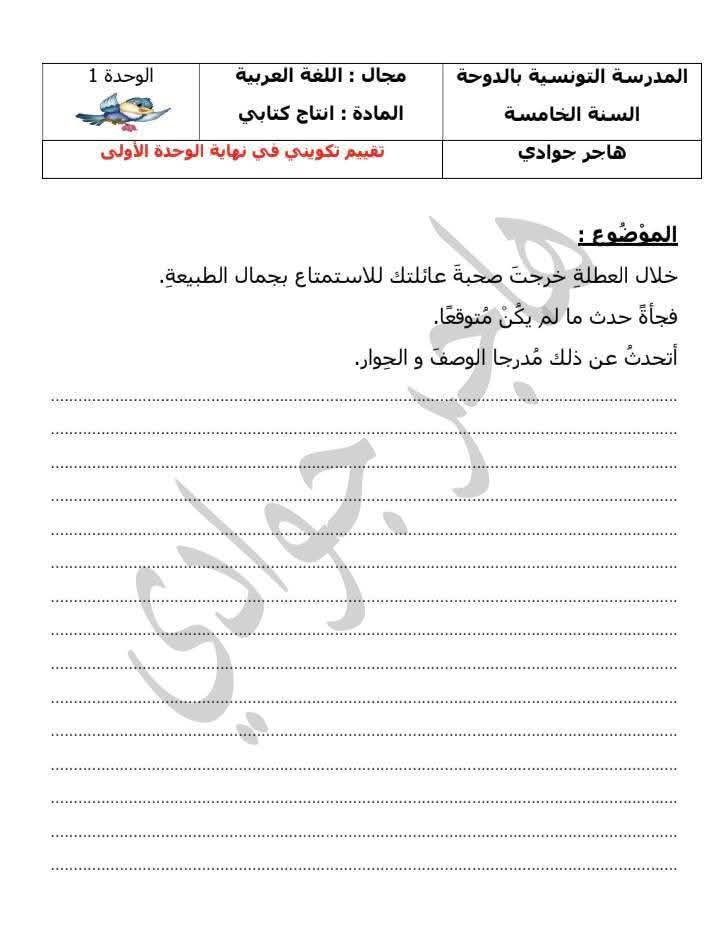 المدرسة التونسية بالدوحة
السنة الخامسة
مجال : اللغة العربية
المادة : انتاج كتابي
الوحدة 1
هاجر جوادي
تقييم تكويني في نهاية الوحدة الأولى
الموْضُوع :
خلال العطلةِ خرجتَ صحبةَ عائلتك للاستمتاع بجمال الطبيعةِ.
فجأةً حدث ما لم يكُنْ مُتوقعًا.
أتحدثُ عن ذلك مُدرجا الوصفَ و الحِوار.
هاجر جوادي